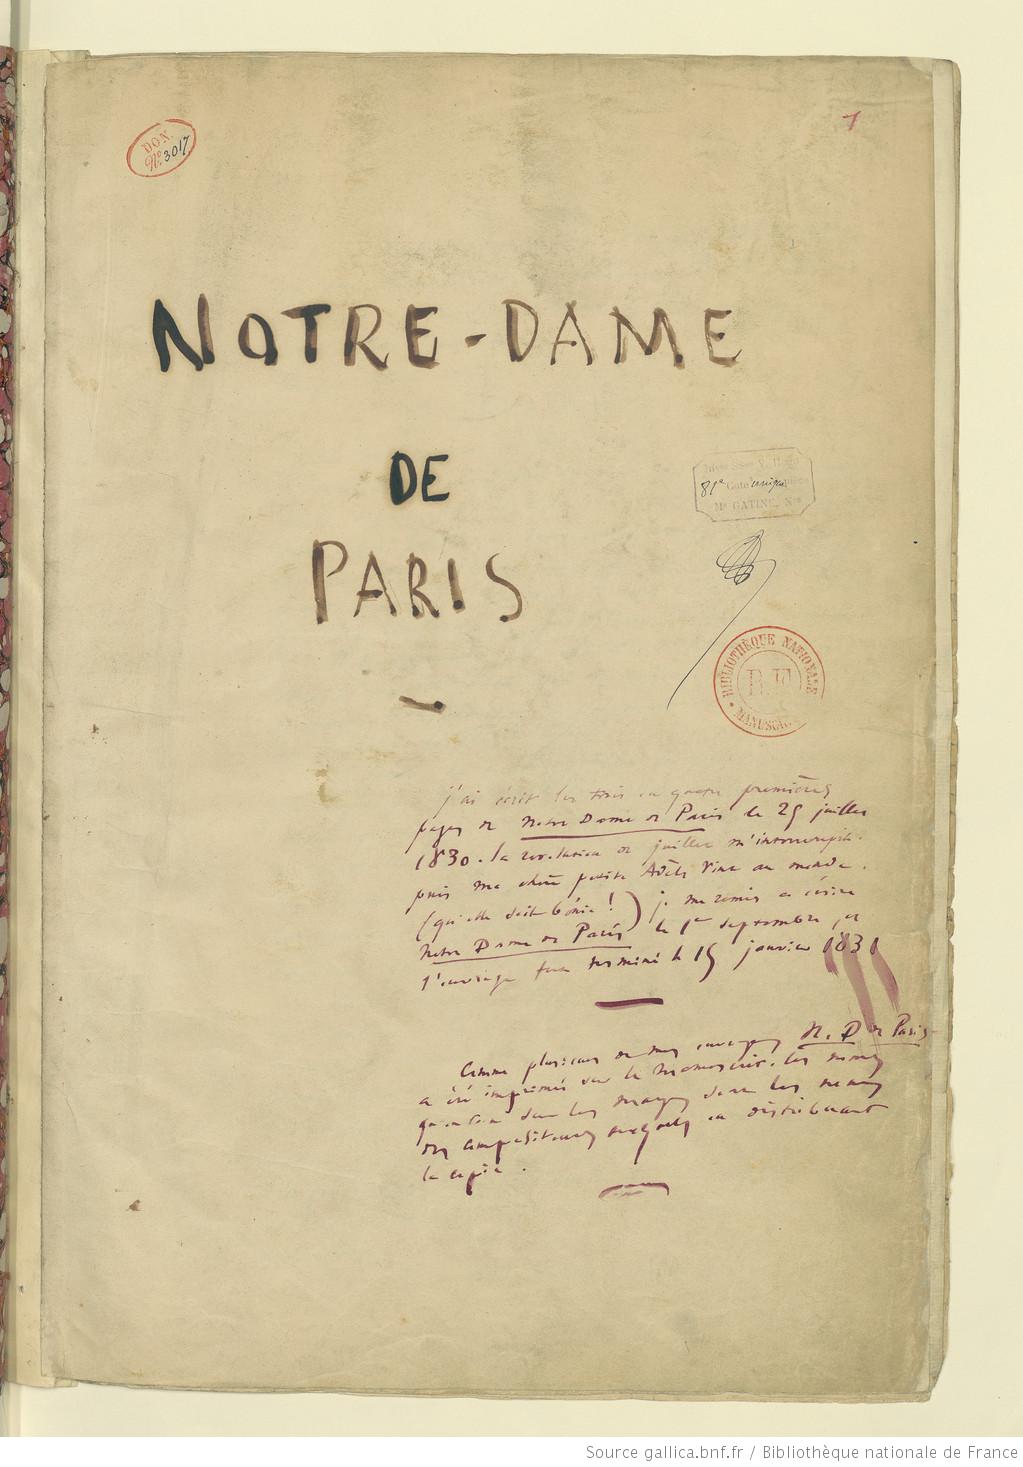 DON.
No. 3017
1
NOTRE-DAME
DE
PARIS
81e Cote
Me GATINE, Nre
BIBLIOTHÈQUE NATIONALE
MANUSC
j'ai écrit les trois ou quatre premières
pages de Notre Dame de Paris le 25 juillet
1830. la révolution de juillet m'interrompit.
puis ma chère petite Adèle vint au monde.
(qu'elle soit bénie!) je me remis à écrire
Notre Dame de Paris le 1er septembre, et
l'ouvrage fut terminé le 15 janvier 1831
Comme plusieurs de mes ouvrages N. D de Paris
a été imprimé sur le manuscrit. les noms
qu'on voit dans les marges sont les noms
des compositeurs auxquels on distribuait
la copie.
Source gallica.bnf.fr / Bibliothèque nationale de France